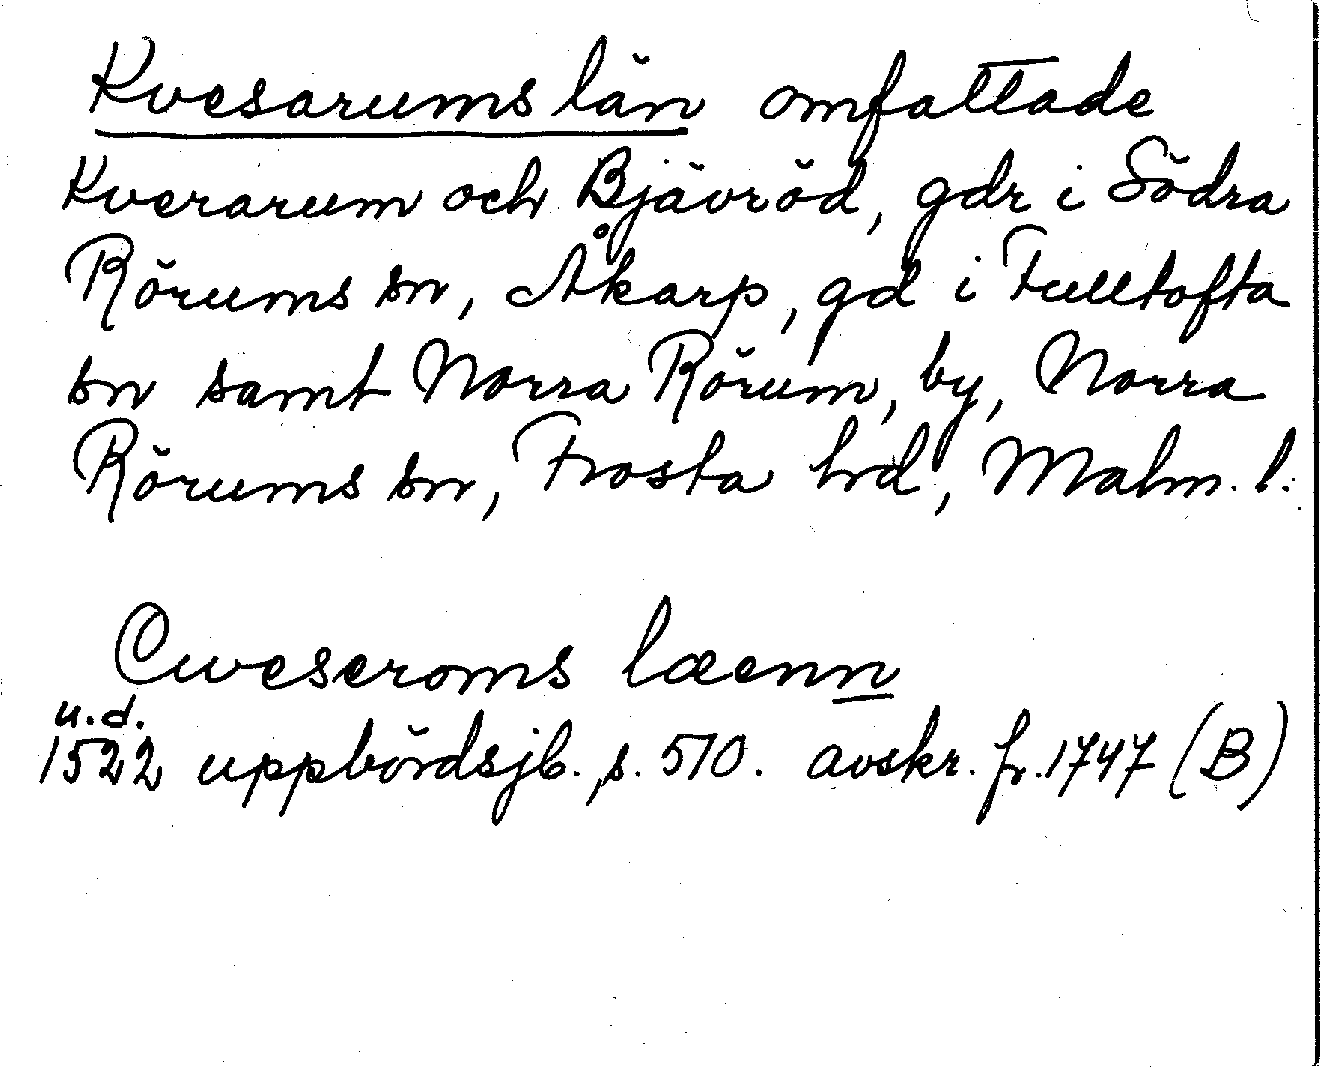 Kvesarums län omfattade
Kverarum och Bjävröd, gdr i Södra
Rörums sn, Åkarp, gd i Fulltofta
sn samt Norra Rörum, by, Norra
Rörums sn, Frosta hrd, Malm. l.
Cweseroms læenn
u.d.
1522 uppbördsjb. s. 510. avskr. fr. 1747 (B)